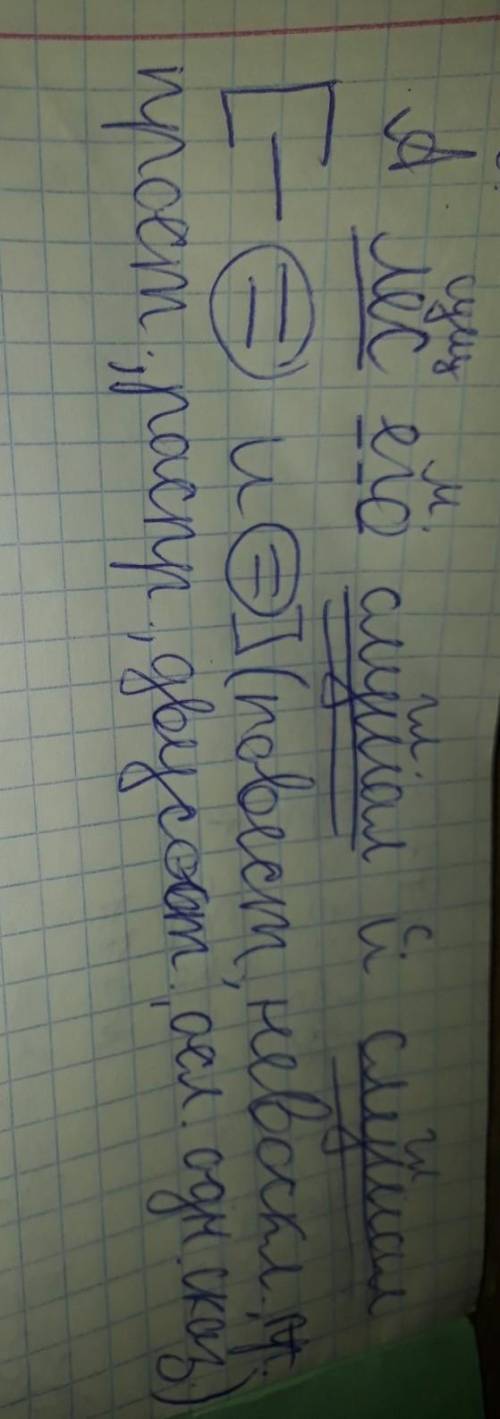 сущ м. гл. с. гл
А лес его слушал и слушал
[– = и =] (повест, невоскл., пр.
прост., распр., двусост., осл. одн. сказ.)